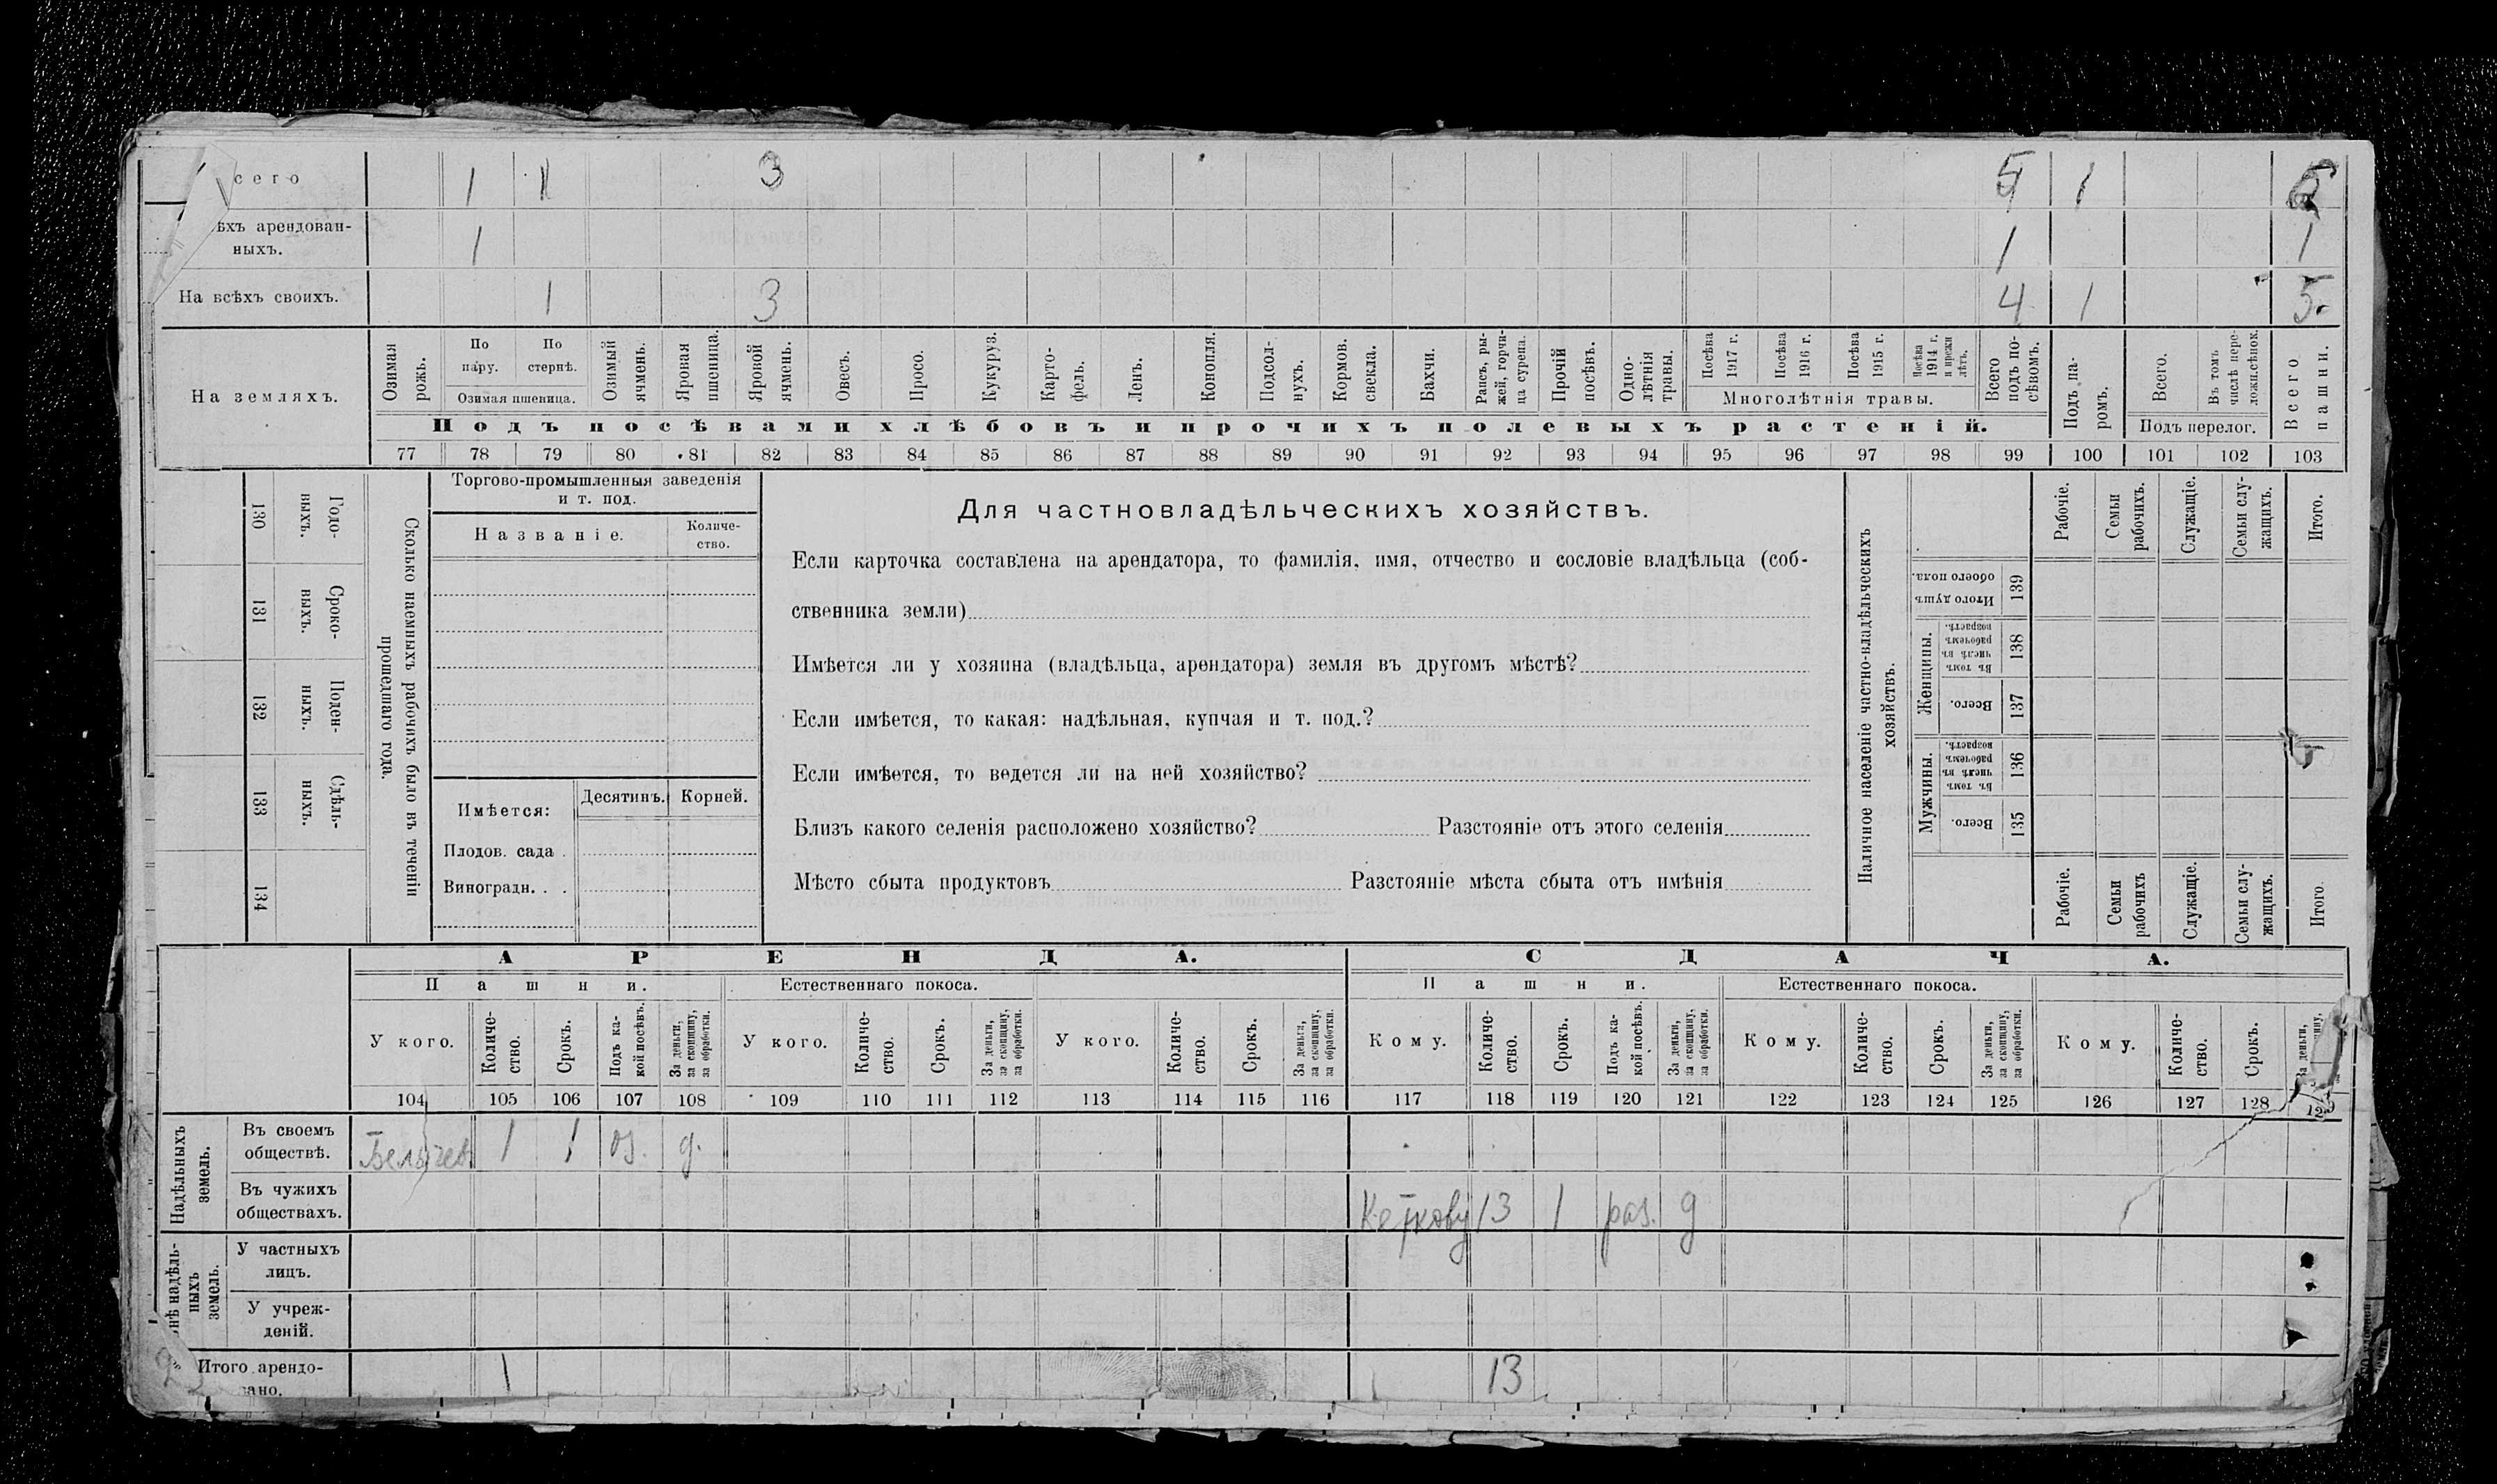 сего 1 1 3 5 1 6
ѣхъ арендован-
ныхъ. 1 1 1
На всѣхъ своихъ. 1 3 4 1 5
На земляхъ.
Озимая рожь.
По пару.
По стернѣ.
Озимая пшеница.
Озимый ячмень.
Яровая пшеница.
Яровой ячмень.
Овесъ.
Просо.
Кукуруз.
Карто-
фель.
Ленъ.
Конопля.
Подсол-
нухъ.
Кормов. свекла.
Бахчи.
Рапсъ, ры-
жей, горчи-
ца сурепа.
Прочій посѣвъ.
Одно-
лѣтнія травы.
Посѣва 1917 г.
Посѣва 1916 г.
Посѣва 1915 г.
Посѣва 1914 г. и прежн лѣтъ.
Многолѣтнія травы.
Всего подъ по-
сѣвомъ.
Подъ па-
ромъ.
Всего.
Въ томъ числѣ пере-
ложн.сѣнок.
Подъ перелог.
Всего пашни.
Подъ посѣвами хлѣбовъ и прочихъ полевыхъ растеній.
77 78 79 80 81 82 83 84 85 86 87 88 89 90 91 92 93 94 95 96 97 98 99 100 101 102 103
130 Годо-
ныхъ.
131 Сроко-
ныхъ.
132 Поден-
ныхъ.
133 Сдѣль-
ныхъ.
134
Сколько наемныхъ рабочихъ было въ теченіи
прошедшаго года.
Торгово-промышленныя заведенія
и т. под.
Названіе.
Количе-
ство.
Имѣется: Десятинъ. Корней.
Плодов. сада .
Виноградн. . .
Для частновладѣльческихъ хозяйствъ.
Если карточка составлена на арендатора, то фамилія, имя, отчество и сословіе владѣльца (соб-
ственника земли)
Имѣется ли у хозяина (владѣльца, арендатора) земля въ другомъ мѣстѣ?
Если имѣется, то какая: надѣльная, купчая и т. под.?
Если имѣется, то ведется ли на ней хозяйство?
Близъ какого селенія расположено хозяйство? Разстояніе отъ этого селенія
Мѣсто сбыта продуктовъ Разстояніе мѣста сбыта отъ имѣнія
Наличное населеніе частно-владѣльческихъ
хозяйствъ.
Рабочіе.
Семьи рабочихъ.
Служащіе.
Семьи слу-
жащихъ.
Итого.
Итого душъ обоего пола. 139
Женщины.
Въ томъ числѣ въ рабочемъ возрастѣ. 138
Всего. 137
Мужчины.
Въ томъ числѣ въ рабочемъ возрастѣ. 136
Всего. 135
Рабочіе.
Семьи рабочихъ
Служащіе.
Семьи слу-
жащихъ.
Итого
АРЕНДА. СДАЧА.
Пашни. Естественнаго покоса. Пашни. Естественнаго покоса.
У кого.
Количе-
ство.
Срокъ.
Подъ ка-
кой посѣвъ.
За деньги, за скопщину, за обработки.
У кого.
Количе-
ство.
Срокъ.
За деньги, за скопщину, за обработки.
У кого.
Количе-
ство.
Срокъ.
За деньги, за скопщину, за обработки.
Кому.
Количе-
ство.
Срокъ.
Подъ ка-
кой посѣвъ.
За деньги, за скопщину, за обработки.
Кому.
Количе-
ство.
Срокъ.
За деньги, за скопщину, за обработки.
Кому.
Количе-
ство.
Срокъ.
За деньги,
104 105 106 107 108 109 110 111 112 113 114 115 116 117 118 119 120 121 122 123 124 125 126 127 128 129
Надѣльныхъ земель.
Въ своемъ
обществѣ. 1 1 оз. д.
Въ чужихъ
обществахъ. 13 1 раз. д
нѣ надѣль-
ныхъ земель.
У частныхъ
лицъ.
У учреж-
деній.
Итого арендо-
вано. 1 13